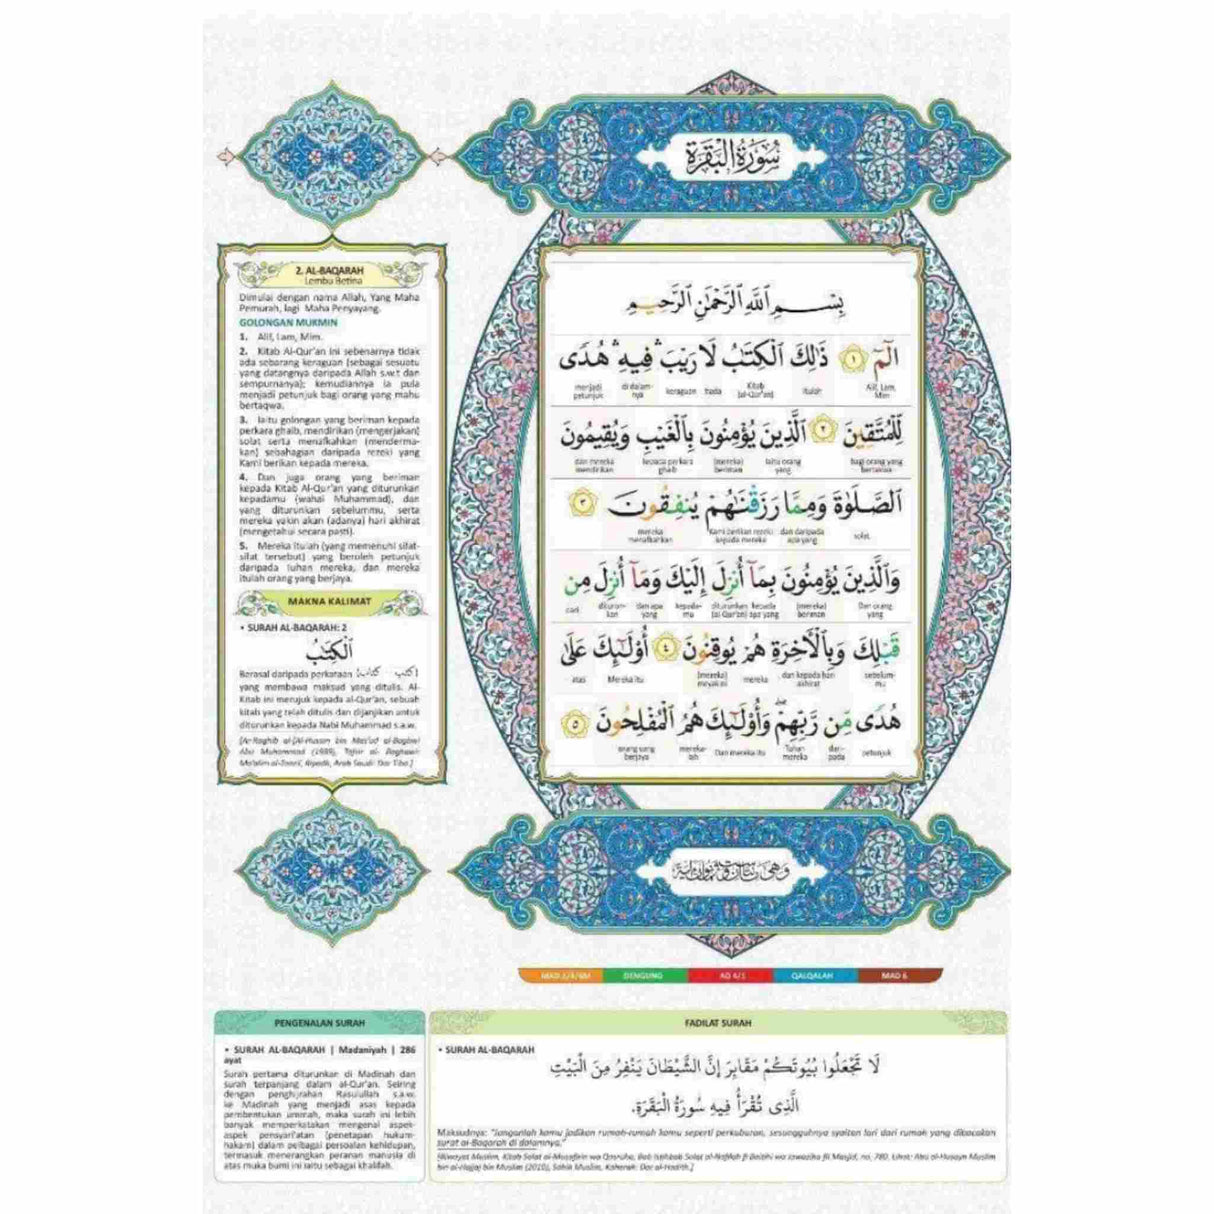 سُورَةُ الْبَقَرَةِ
2. AL-BAQARAH
Lembu Betina
Dimulai dengan nama Allah, Yang Maha
Pemurah, lagi Maha Penyayang.
GOLONGAN MUKMIN
1. Alif, Lam, Mim.
2. Kitab Al-Qur'an ini sebenarnya tidak
ada sebarang keraguan (sebagai sesuatu
yang datangnya daripada Allah s.w.t dan
sempurnanya); kemudiannya ia pula
menjadi petunjuk bagi orang yang mahu
bertaqwa.
3. Iaitu golongan yang beriman kepada
perkara ghaib, mendirikan (mengerjakan)
solat serta menafkahkan (menderma-
kan) sebahagian daripada rezeki yang
Kami berikan kepada mereka.
4. Dan juga orang yang beriman
kepada Kitab Al-Qur'an yang diturunkan
kepadamu (wahai Muhammad), dan
yang diturunkan sebelummu, serta
mereka yakin akan (adanya) hari akhirat
(mengetahui secara pasti).
5. Mereka itulah (yang memenuhi sifat-
sifat tersebut) yang beroleh petunjuk
daripada Tuhan mereka, dan mereka
itulah orang yang berjaya.
MAKNA KALIMAT
• SURAH AL-BAQARAH: 2
الْكِتَٰبُ
Berasal daripada perkataan (كتب كتاب)
yang membawa maksud yang ditulis. Al-
Kitab ini merujuk kepada al-Qur'an, sebuah
kitab yang telah ditulis dan dijanjikan untuk
diturunkan kepada Nabi Muhammad s.a.w.
[Ar-Raghib al-(Al-Husan bin Mas'ud al-Baghwi
Abu Muhammad (1989), Tafsir al-Baghawi
Ma'alim al-Tanzil, Riyadh, Arab Saudi: Dar Tiba.]
بِسْمِ اللَّهِ الرَّحْمَٰنِ الرَّحِيمِ
الٓمٓ ١ ذَٰلِكَ الْكِتَٰبُ لَا رَيْبَ ۛ فِيهِ ۛ هُدًى
Alif, Lam, Mim itulah Kitab (al-Qur'an) tiada keraguan di dalam-nya menjadi petunjuk
لِّلْمُتَّقِينَ ٢ الَّذِينَ يُؤْمِنُونَ بِالْغَيْبِ وَيُقِيمُونَ
bagi orang yang bertakwa Iaitu orang yang (mereka) beriman kepada perkara ghaib dan mereka mendirikan
الصَّلَوٰةَ وَمِمَّا رَزَقْنَٰهُمْ يُنفِقُونَ ٣
solat dan daripada apa yang Kami berikan rezeki kepada mereka mereka menafkahkan
وَالَّذِينَ يُؤْمِنُونَ بِمَآ أُنزِلَ إِلَيْكَ وَمَآ أُنزِلَ مِن
Dan orang yang (mereka) beriman kepada apa yang diturunkan (al-Qur'an) kepada-mu dan apa yang diturun-kan dari
قَبْلِكَ وَبِالْآخِرَةِ هُمْ يُوقِنُونَ ٤ أُولَٰٓئِكَ عَلَىٰ
sebelum-mu dan kepada hari akhirat mereka (mereka) meyakini Mereka itu atas
هُدًى مِّن رَّبِّهِمْ ۖ وَأُولَٰٓئِكَ هُمُ الْمُفْلِحُونَ ٥
petunjuk dari-pada Tuhan mereka Dan mereka itu mereka-lah orang yang berjaya
MAD 2/4/6M DENGUNG AD 4/5 QALQALAH MAD 6
PENGENALAN SURAH
• SURAH AL-BAQARAH | Madaniyah | 286
ayat
Surah pertama diturunkan di Madinah dan
surah terpanjang dalam al-Qur'an. Seiring
dengan penghijrahan Rasulullah s.a.w.
ke Madinah yang menjadi asas kepada
pembentukan ummah, maka surah ini lebih
banyak memperkatakan mengenai aspek-
aspek pensyari'atan (penetapan hukum-
hakam) dalam pelbagai persoalan kehidupan,
termasuk menerangkan peranan manusia di
atas muka bumi ini iaitu sebagai khalifah.
FADILAT SURAH
• SURAH AL-BAQARAH
لَا تَجْعَلُوا بُيُوتَكُمْ مَقَابِرَ إِنَّ الشَّيْطَانَ يَنْفِرُ مِنَ الْبَيْتِ
الَّذِى تُقْرَأُ فِيهِ سُورَةُ الْبَقَرَةِ.
Maksudnya: "Janganlah kamu jadikan rumah-rumah kamu seperti perkuburan, sesungguhnya syaitan lari dari rumah yang dibacakan
surat al-Baqarah di dalamnya."
[Riwayat Muslim, Kitab Solat al-Musafirin wa Qasruha, Bab Istihbab Solat al-Nafilah fi Baitihi wa Jawaziha fil Masjid, no. 780. Lihat: Abu al-Husayn Muslim
bin al-Hajjaj bin Muslim (2010), Sahih Muslim, Kaherah: Dar al-Hadith.]